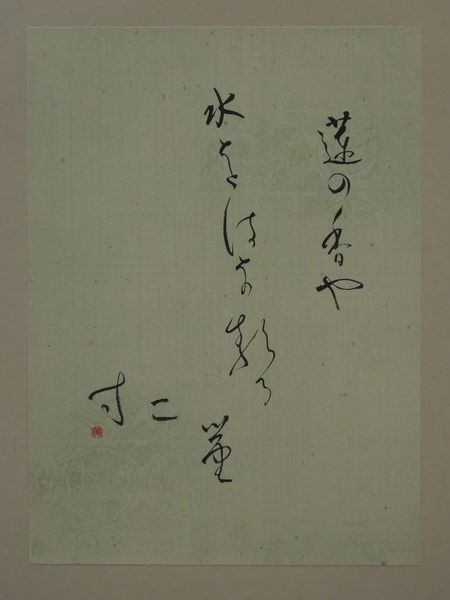 蓮の香や
水をはなるる茎
二寸